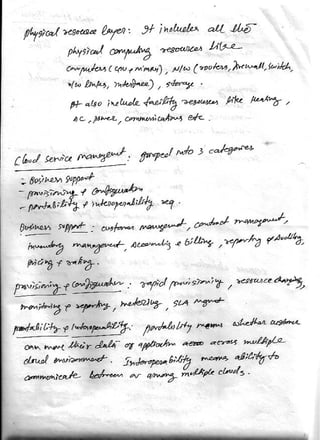 physical resource layer: It includes all the
physical computing resources like
computers (CPU & memory), N/w (routers, firewall, switch,
N/w links, interface), storage.
It also include facility resources like Heating,
AC, power, communications etc.
Cloud service management: grouped into 3 categories
- Business support
- provisioning & configuration
- portability & interoperability req.
Business support: customer management, contract management,
inventory management, Accounting & billing, reporting & Auditing,
pricing & rating.
provisioning & configuration: rapid provisioning, resource changing,
monitoring & reporting, metering, SLA mgmt
portability & Interoperability: portability means whether customer
can move their data or application across multiple
cloud environment. Interoperability means ability to
communicate between or among multiple clouds.